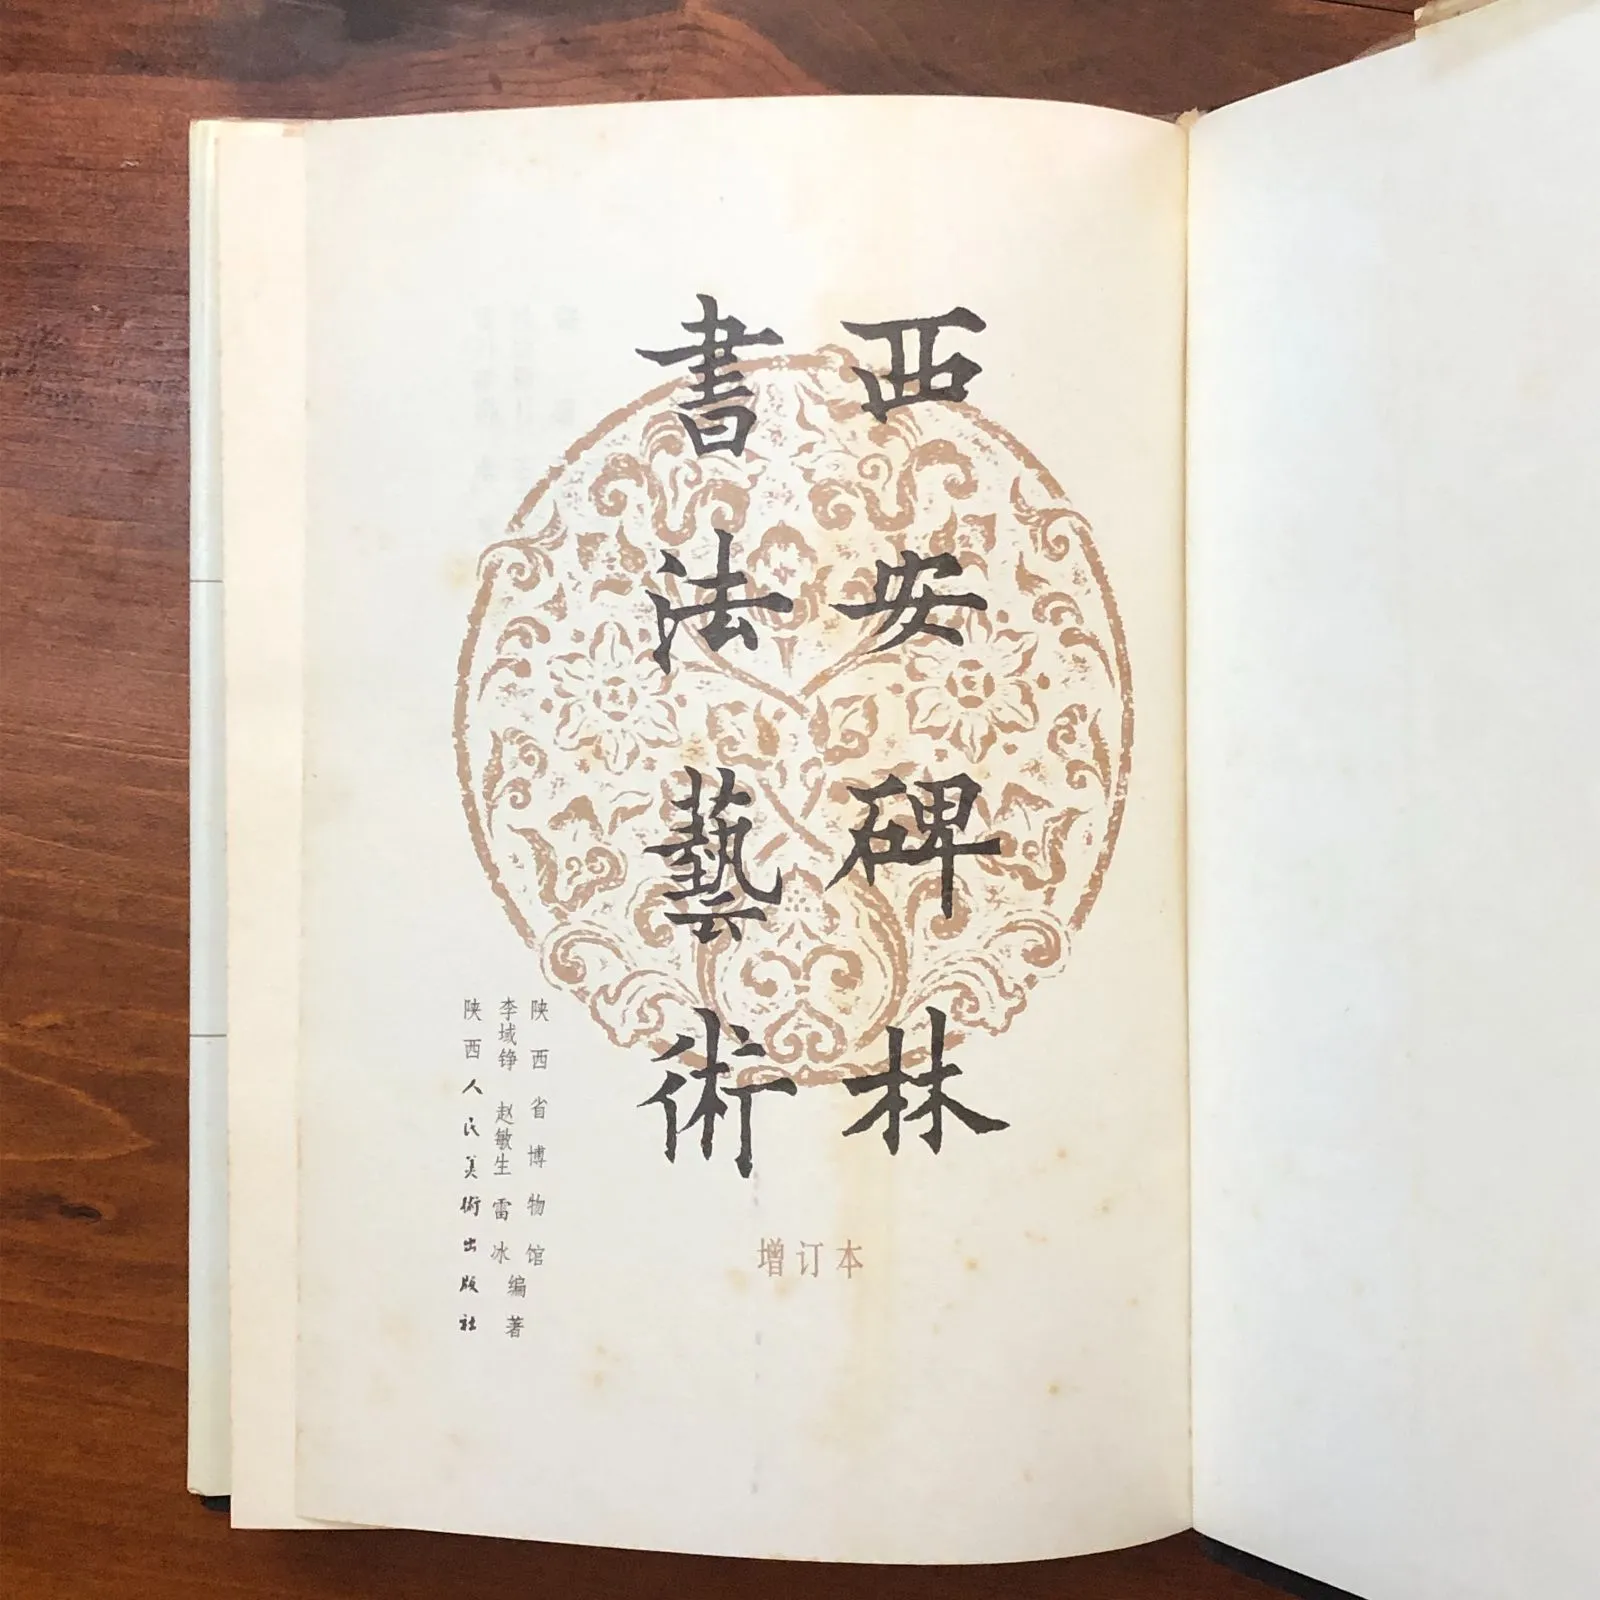 西安碑林
書法藝術
增订本
陕西省博物馆
李域铮 赵敏生 雷冰 编著
陕西人民美術出版社